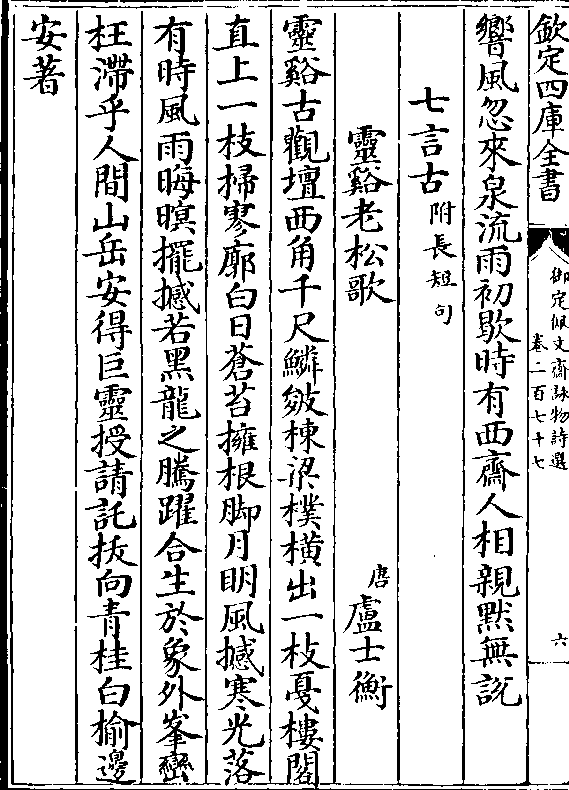 欽定四庫全書
御定佩文齋詠物詩選
卷二百七十七
六
響風忽來泉流雨初歇時有西齋人相親黙無說
七言古附長短句
靈谿老松歌
唐盧士衡
靈谿古觀壇西角千尺鱗皴棟梁樸橫出一枝戞樓閣
直上一枝掃寥廓白日蒼苔擁根脚月明風撼寒光落
有時風雨晦暝擺撼若黑龍之騰躍合生於象外峯巒
枉滯乎人間山岳安得巨靈授請託拔向青桂白榆邊
安著